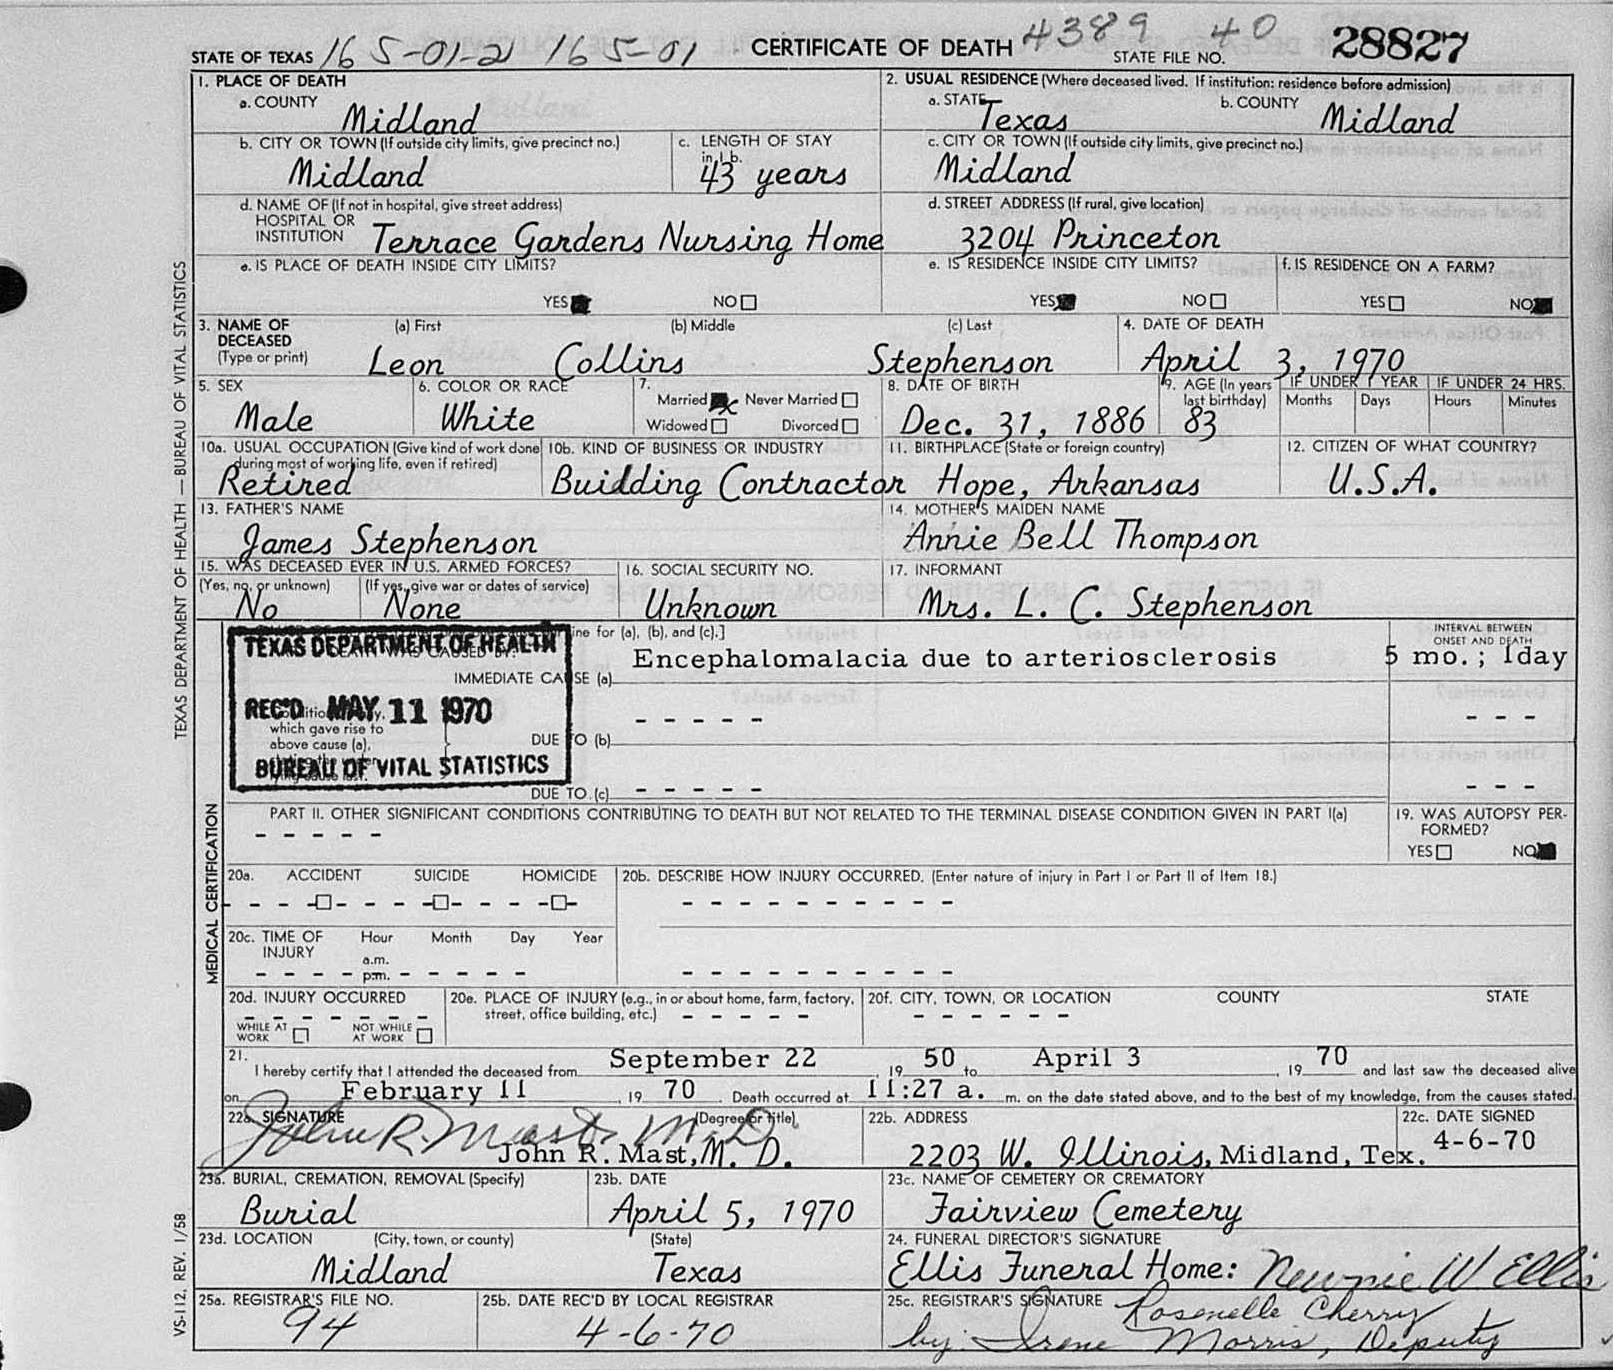 STATE OF TEXAS 165-01-2 165-01 CERTIFICATE OF DEATH 4389 40 STATE FILE NO. 28827
1. PLACE OF DEATH
a. COUNTY
Midland
2. USUAL RESIDENCE (Where deceased lived. If institution: residence before admission)
a. STATE Texas b. COUNTY Midland
b. CITY OR TOWN (If outside city limits, give precinct no.)
Midland
c. LENGTH OF STAY
in 1 b.
43 years
c. CITY OR TOWN (If outside city limits, give precinct no.)
Midland
d. NAME OF (If not in hospital, give street address)
HOSPITAL OR
INSTITUTION Terrace Gardens Nursing Home
d. STREET ADDRESS (If rural, give location)
3204 Princeton
e. IS PLACE OF DEATH INSIDE CITY LIMITS?
YES NO
e. IS RESIDENCE INSIDE CITY LIMITS?
YES NO
f. IS RESIDENCE ON A FARM?
YES NO
3. NAME OF DECEASED (Type or print)
(a) First (b) Middle (c) Last
Leon Collins Stephenson
4. DATE OF DEATH
April 3, 1970
5. SEX
Male
6. COLOR OR RACE
White
7.
Married Never Married
Widowed Divorced
8. DATE OF BIRTH
Dec. 31, 1886
9. AGE (In years last birthday)
83
IF UNDER 1 YEAR
Months Days
IF UNDER 24 HRS.
Hours Minutes
10a. USUAL OCCUPATION (Give kind of work done during most of working life, even if retired)
Retired
10b. KIND OF BUSINESS OR INDUSTRY
Building Contractor
11. BIRTHPLACE (State or foreign country)
Hope, Arkansas
12. CITIZEN OF WHAT COUNTRY?
U.S.A.
13. FATHER'S NAME
James Stephenson
14. MOTHER'S MAIDEN NAME
Annie Bell Thompson
15. WAS DECEASED EVER IN U.S. ARMED FORCES?
(Yes, no, or unknown) (If yes, give war or dates of service)
No None
16. SOCIAL SECURITY NO.
Unknown
17. INFORMANT
Mrs. L. C. Stephenson
TEXAS DEPARTMENT OF HEALTH
REC'D MAY 11 1970
BUREAU OF VITAL STATISTICS
line for (a), (b), and (c).]
DEATH WAS CAUSED BY:
IMMEDIATE CAUSE (a) Encephalomalacia due to arteriosclerosis
INTERVAL BETWEEN ONSET AND DEATH
5 mo.; 1day
which gave rise to
above cause (a),
DUE TO (b) - - - - - - - -
DUE TO (c) - - - - - - - -
PART II. OTHER SIGNIFICANT CONDITIONS CONTRIBUTING TO DEATH BUT NOT RELATED TO THE TERMINAL DISEASE CONDITION GIVEN IN PART I(a)
- - - - -
19. WAS AUTOPSY PERFORMED?
YES NO
20a. ACCIDENT SUICIDE HOMICIDE
20b. DESCRIBE HOW INJURY OCCURRED. (Enter nature of injury in Part I or Part II of Item 18.)
- - - - - - - - - -
20c. TIME OF INJURY
Hour Month Day Year
a.m.
p.m.
- - - - - - - - - -
20d. INJURY OCCURRED
WHILE AT WORK NOT WHILE AT WORK
20e. PLACE OF INJURY (e.g., in or about home, farm, factory, street, office building, etc.) - - - - -
20f. CITY, TOWN, OR LOCATION COUNTY STATE
- - - - - -
21.
I hereby certify that I attended the deceased from September 22, 19 50 to April 3, 19 70 and last saw the deceased alive
on February 11, 19 70. Death occurred at 11:27 a. m. on the date stated above, and to the best of my knowledge, from the causes stated.
22a. SIGNATURE (Degree or title)
John R. Mast M.D.
John R. Mast, M. D.
22b. ADDRESS
2203 W. Illinois, Midland, Tex.
22c. DATE SIGNED
4-6-70
23a. BURIAL, CREMATION, REMOVAL (Specify)
Burial
23b. DATE
April 5, 1970
23c. NAME OF CEMETERY OR CREMATORY
Fairview Cemetery
23d. LOCATION (City, town, or county) (State)
Midland Texas
24. FUNERAL DIRECTOR'S SIGNATURE
Ellis Funeral Home: Newnie W Ellis
25a. REGISTRAR'S FILE NO.
94
25b. DATE REC'D BY LOCAL REGISTRAR
4-6-70
25c. REGISTRAR'S SIGNATURE Rosenelle Cherry
by: Irene Morris, Deputy
TEXAS DEPARTMENT OF HEALTH — BUREAU OF VITAL STATISTICS
MEDICAL CERTIFICATION
VS-112, REV. 1/58